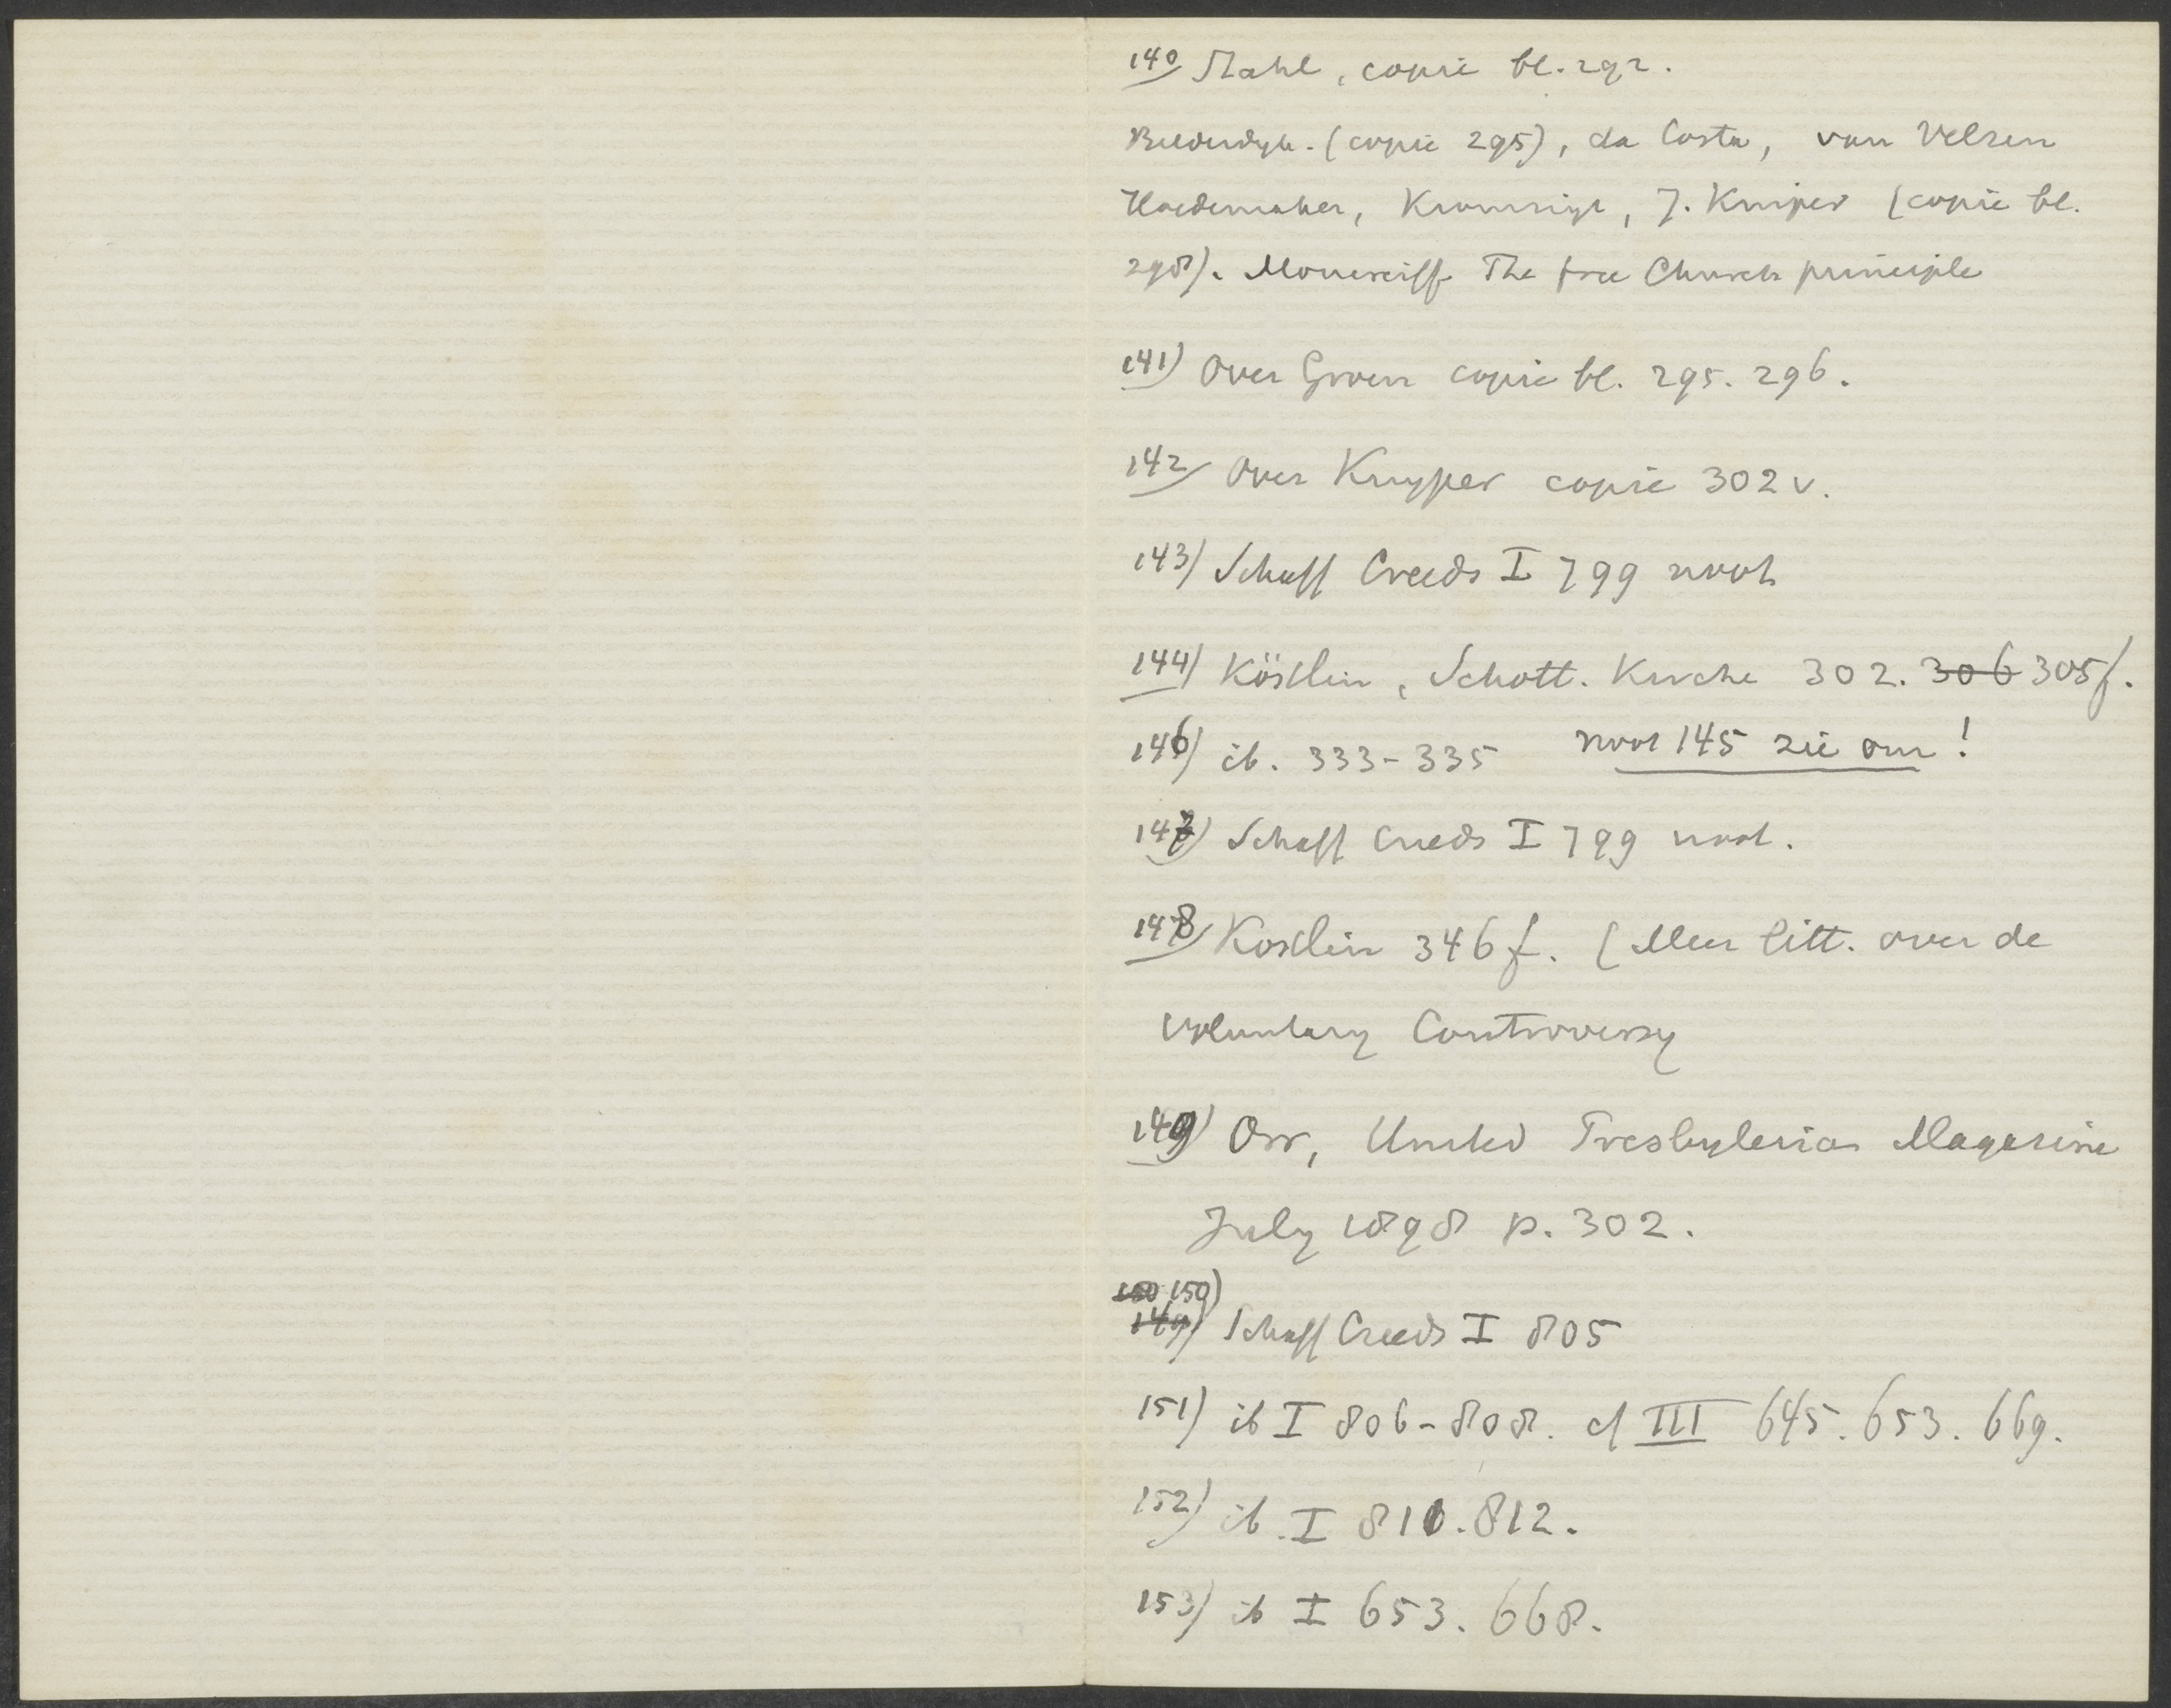 140) Stahl, copie bl. 292.
Bilderdijk. (copie 295), da Costa, van Velzen
Hoedemaker, Kromsigt, J. Kuiper (copie bl.
298). Moncreiff The free Church principle
141) Over Groen copie bl. 295. 296.
142) Over Kuyper copie 302 v.
143) Schaff Creeds I 799 noot
144) Köstlin, Schott. Kirche 302. 306 305f.
146) ib. 333-335 noot 145 zie om!
147) Schaff Creeds I 799 noot.
148) Kostlin 346 f. (Meer litt. over de
Voluntary Controversy
149) Orr, United Presbyterian Magazine
July 1898 p. 302.
150 150)
149) Schaff Creeds I 805
151) ib I 806-808. cf III 645. 653. 669.
152) ib. I 810. 812.
153) ib I 653. 668.